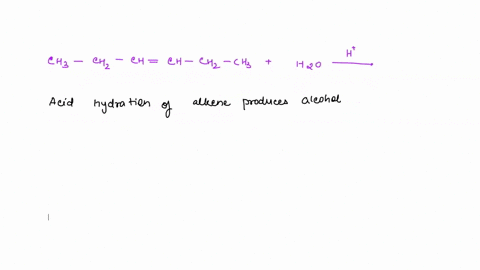 CH3 — CH2 — CH = CH — CH2 — CH3 + H2O H+ →
Acid hydration of alkene produces alcohol